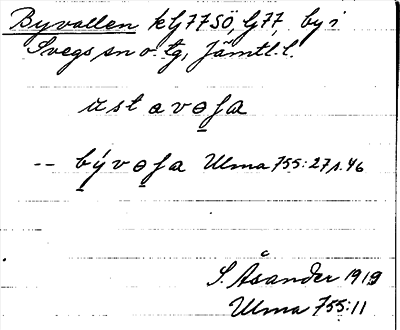 Byvallen kG77SÖ, G77, by i
Svegs sn o. tg, Jämtl. l.
ust a vo̱fa
-- bývo̱fa Ulma 755:27 s. 46
S. Åsander 1919
Ulma 755:11